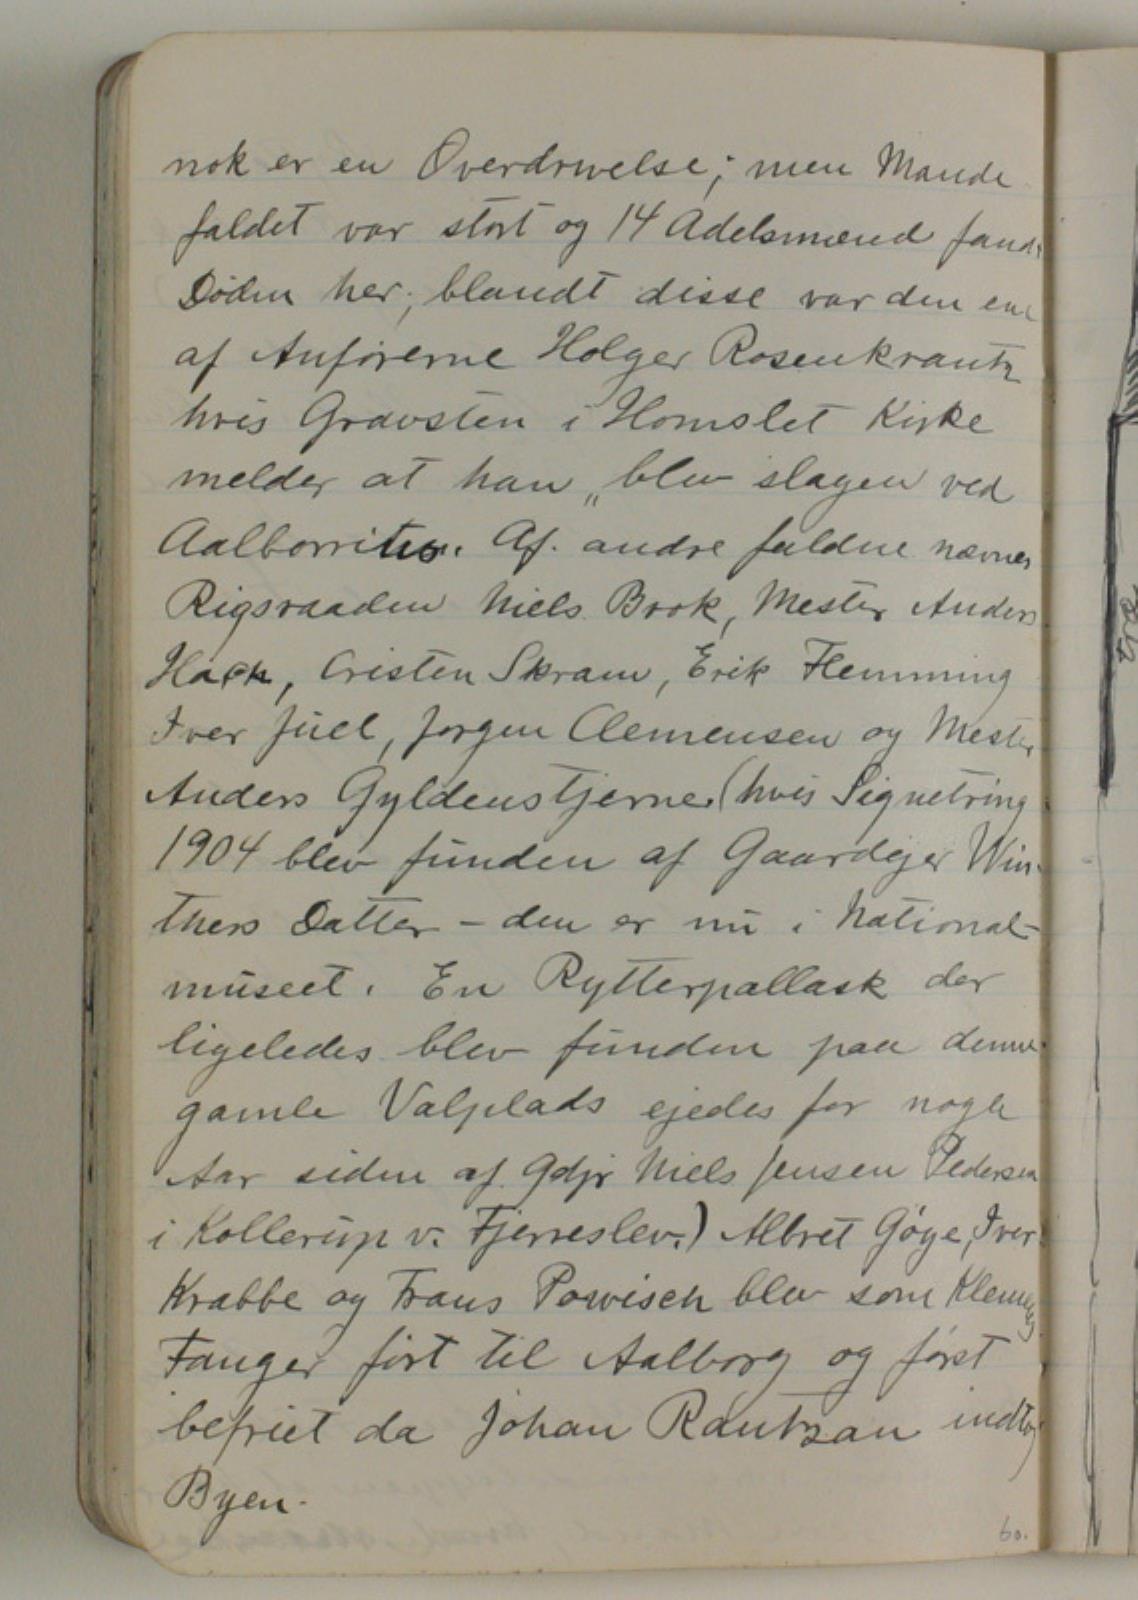 nok er en Overdrivelse; men Mande
faldet var stort og 14 Adelsmænd fandt
Døden her; blandt disse var den ene
af Anførerne Holger Rosenkrantz
hvis Gravsten i Homslet Kirke
melder at han „blev slagen ved
Af. andre faldne nævnes
Rigsraaden Niels Brok, Mester Anders
Cristen Skram, Erik Flemming
Iver Juel, Jørgen Clemensen og Mester
Anders Gyldenstjerne (hvis Signetring
1904 blev funden af Gaardejer Win-
thers Datter – den er nu i National-
museet. En Rytterpallask der
ligeledes blev funden paa denne
gamle Valplads ejedes for nogle
Aar siden af Gdjr Niels Jensen Pedersen
i Kollerup v. Fjerreslev.) Albret Gøye, Iver
Krabbe og Frans Powisch blev som
Fanger ført til Aalborg og først
befriet da Johan Rantzau indtog
Byen.
60.